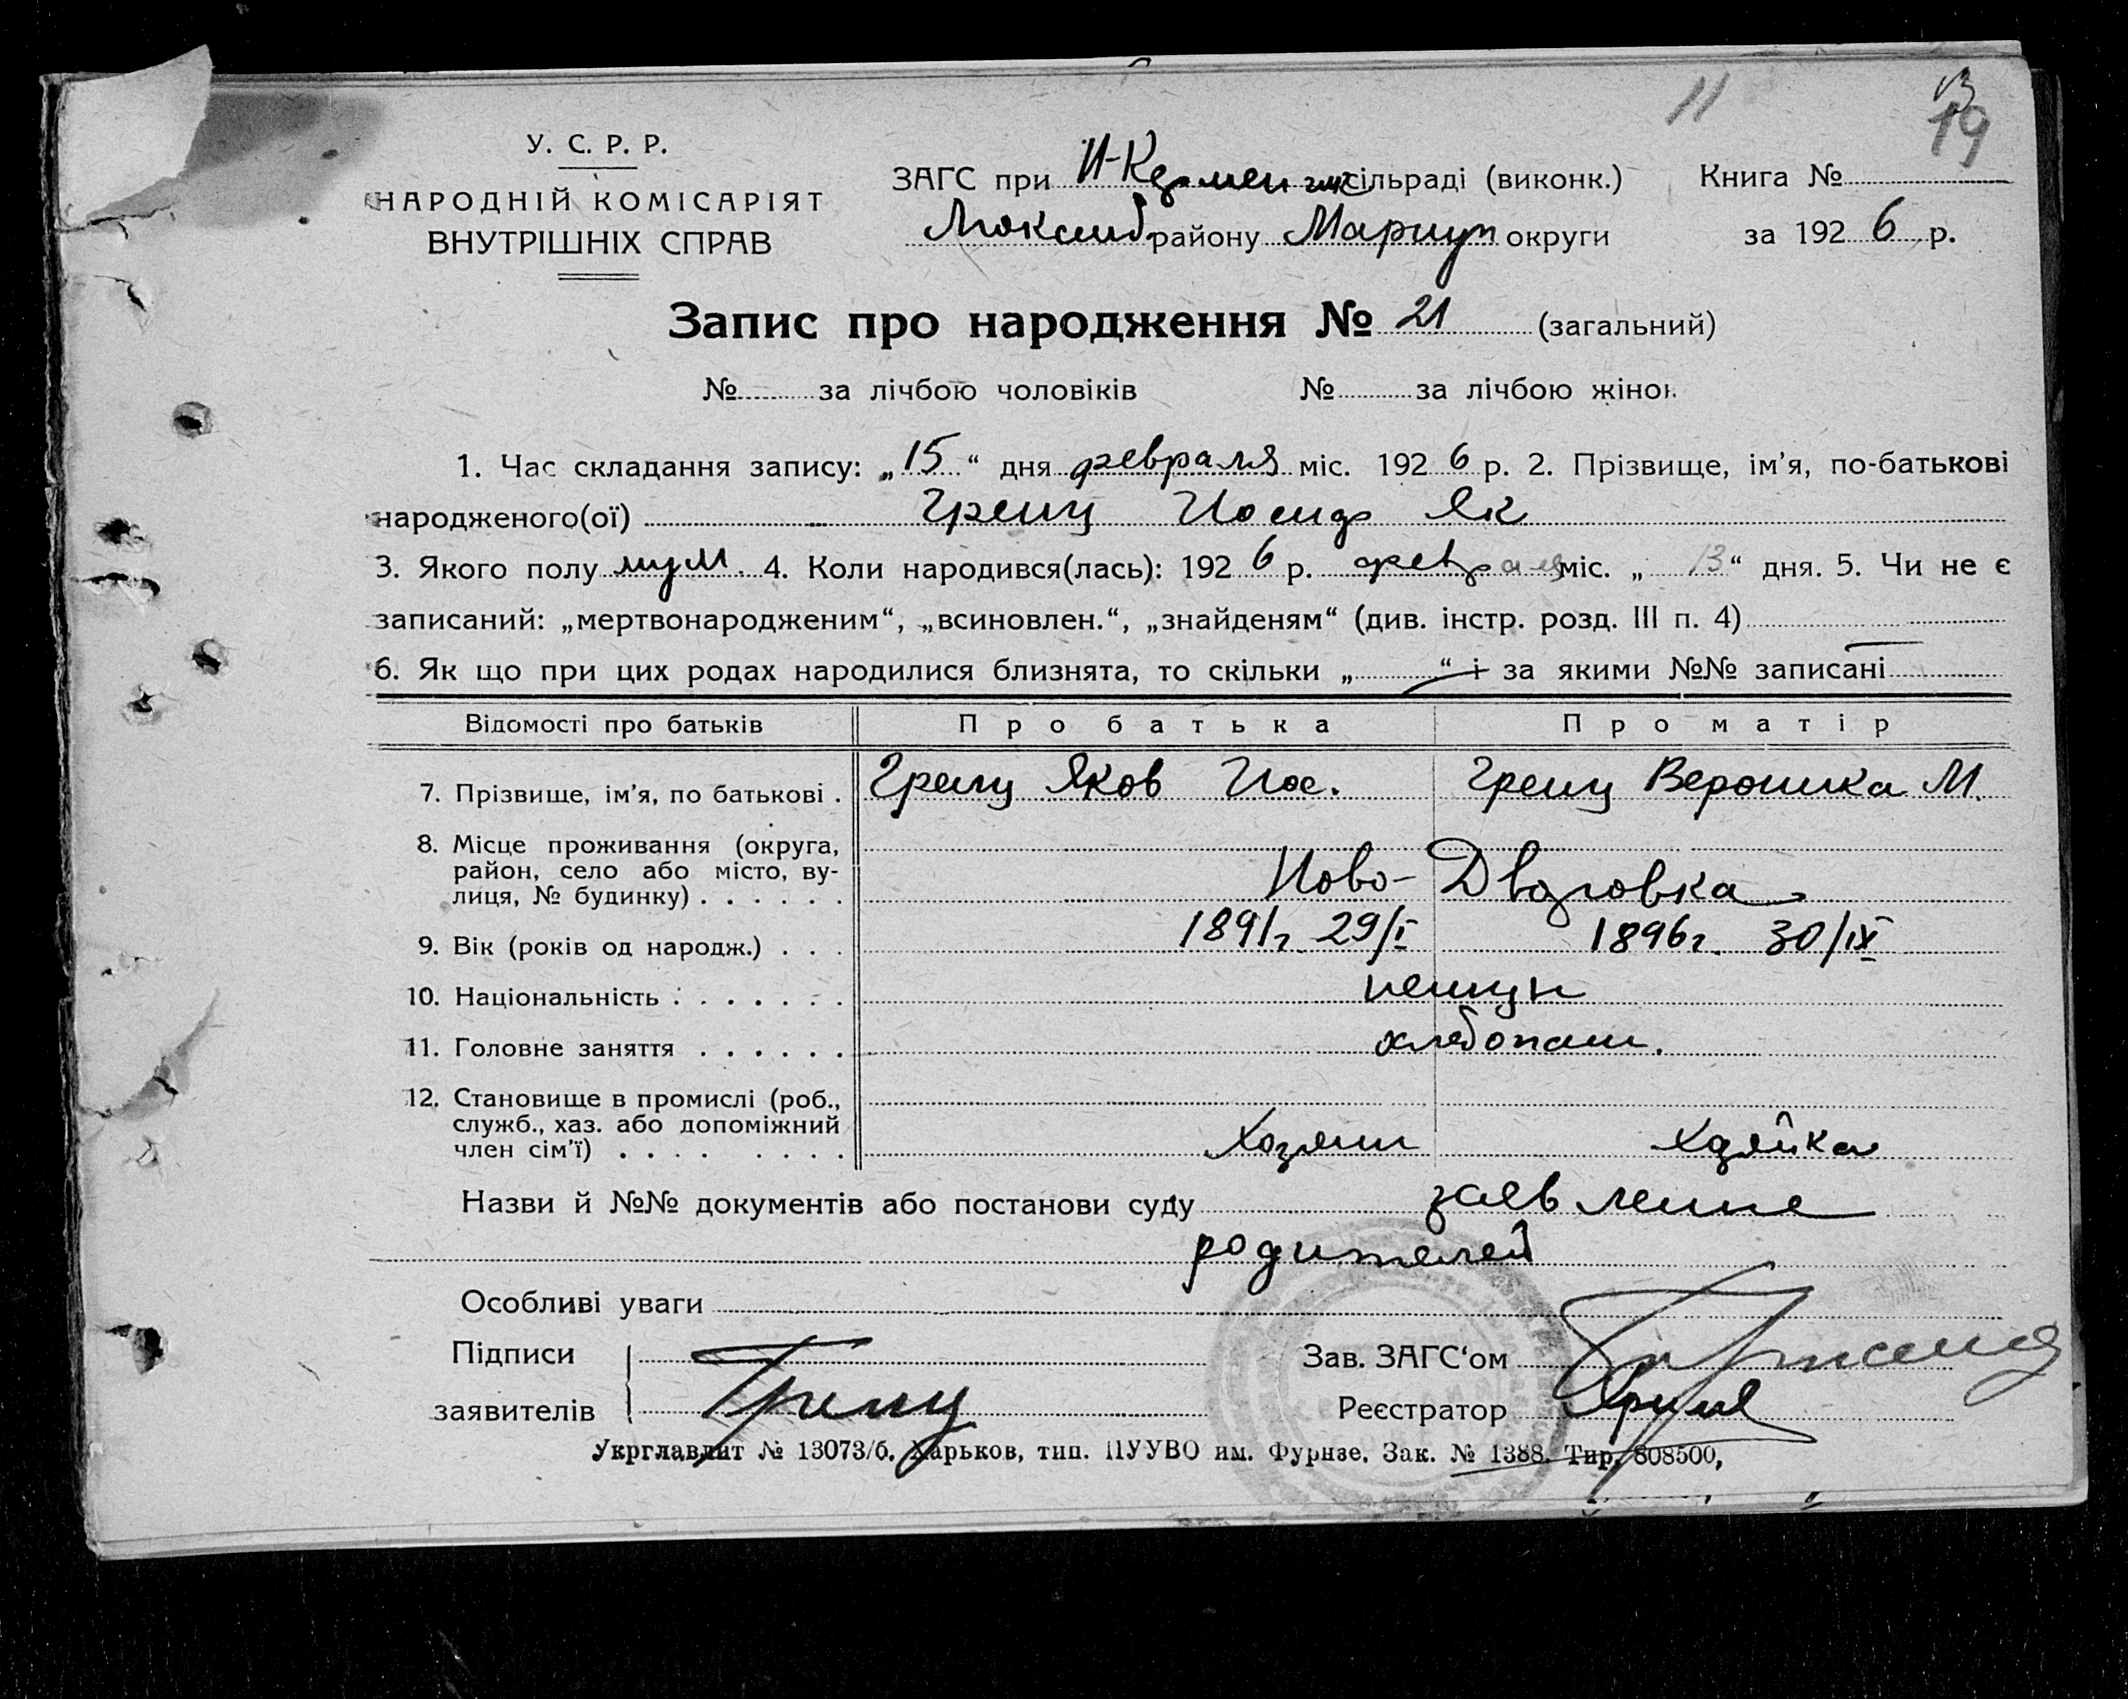 11
13
19
У. С. Р. Р.
НАРОДНІЙ КОМІСАРІЯТ
ВНУТРІШНІХ СПРАВ
ЗАГС при Н-Керменчик сільраді (виконк.) Книга №
района Мариуп округи за 1926 р.
Запис про народження № 21 (загальний)
№ за лічбою чоловіків № за лічбою жінок
1. Час складання запису: „15“ дня февраля міс. 1926 р. 2. Прізвище, ім'я, по-батькові
народженого(ої) Грец Иосиф Як
3. Якого полу муж. 4. Коли народився(лась): 1926 р. февраля міс. „13“ дня. 5. Чи не є
записаний: „мертвонародженим“, „всиновлен.“, „знайденям“ (див. інстр. розд. III п. 4)
6. Як що при цих родах народилися близнята, то скільки „ “ і за якими №№ записані
Відомості про батьків Про батька Про матір
7. Прізвище, ім'я, по батькові . Яков Иос. Вероника М.
8. Місце проживання (округа,
район, село або місто, ву-
лиця, № будинку) . . . . . . Ново-Дворовка
9. Вік (років од народж.) . . . 1891г. 29/I 1896г. 30/IX
10. Національність . . . . . . .
11. Головне заняття . . . . . . хлебопаш.
12. Становище в промислі (роб.,
служб., хаз. або допоміжний
член сім'ї) . . . . . . . . Хозяин Хозяйка
Назви й №№ документів або постанови суду заявление
родителей
Особливі уваги
Підписи
заявителів
Зав. ЗАГС‘ом
Реєстратор
Укрглавлит № 13073/б. Харьков, тип. ПУУВО им. Фурнзе. Зак. № 1388. Тир. 808500,